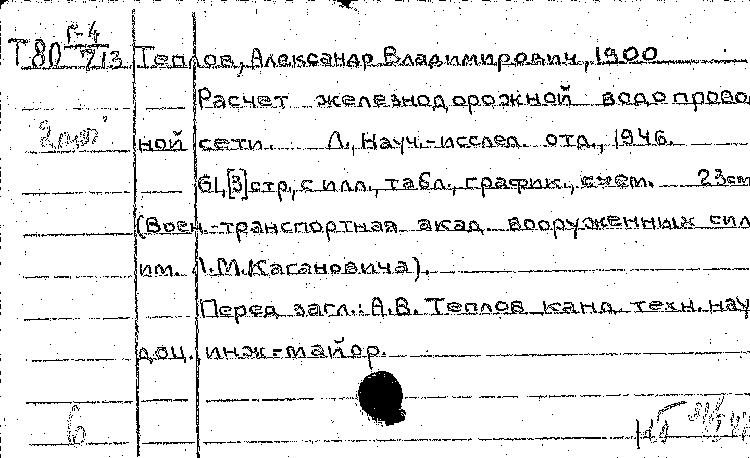 Г-4
Т80 713 Теплов, Александр Владимирович, 1900
Расчет железнодорожной водопровод
2 экз.
ной сети. Л., Науч.-исслед. отд., 1946.
61,[3]стр., с илл., табл., график., схем. 23см
(Воен.-транспортная акад. вооруженных сил
им. Л.М.Кагановича).
Перед загл.: А.В. Теплов канд. техн. нау
доц. инж-майор.
6